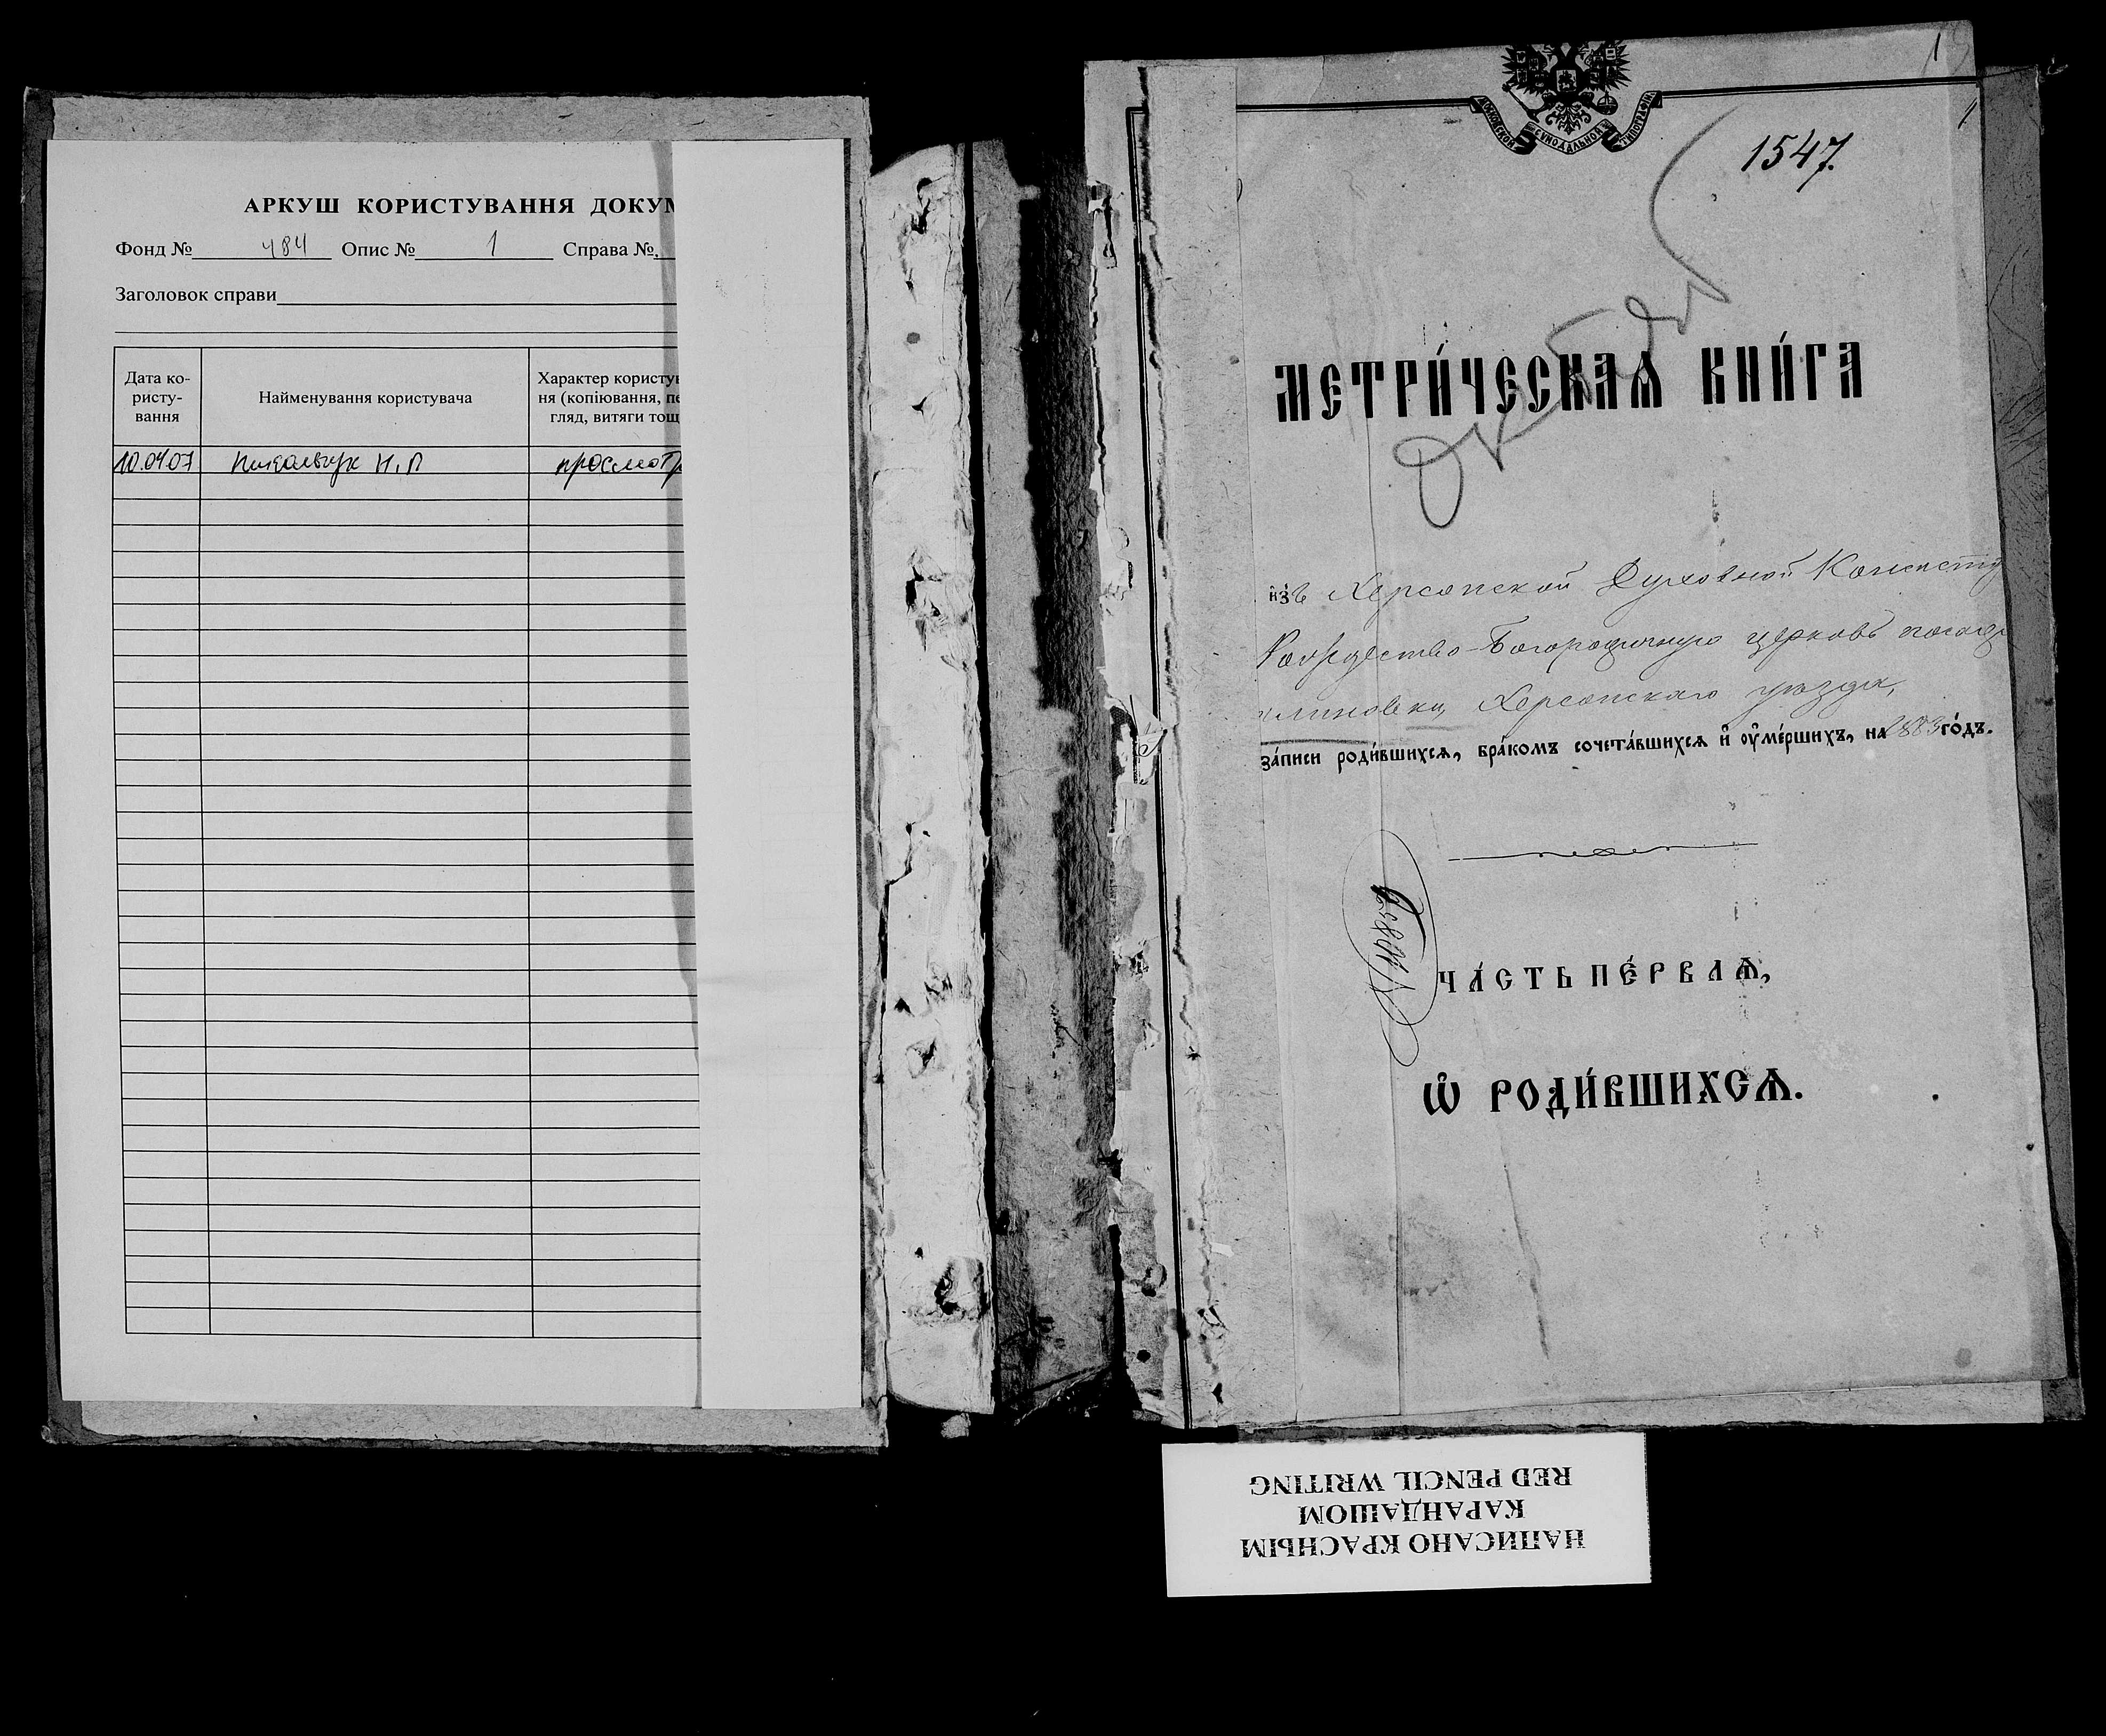 АРКУШ КОРИСТУВАННЯ ДОКУМ
Фонд № 484 Опис № 1 Справа №
Заголовок справи
Дата ко-
ристу-
вання
Найменування користувача
Характер користу
ня (копіювання, пе
гляд, витяги тощ
10.04.07 Н.П просмотр
1
МОСКОВСКОЙ СѴНОДАЛЬНОЙ ТИПОГРАФІИ
1547.
МЕТРИ́ЧЕСКАѦ КНИ́ГА
и҆зъ Херсонской Духовной Консисто
Рождество-Богородичную церковь посад
линовки, Херсонскаго уѣзда,
за́писи роди́вшихсѧ, бра́комъ сочета́вшихсѧ и҆ ѹ҆ме́ршихъ, на 1883 го́дъ.
ЧА́СТЬ ПЕ́РВАѦ,
Ѡ҆ РОДИ́ВШИХСѦ.
НАПИСАНО КРАСНЫМ
КАРАНДАШОМ
RED PENCIL WRITING